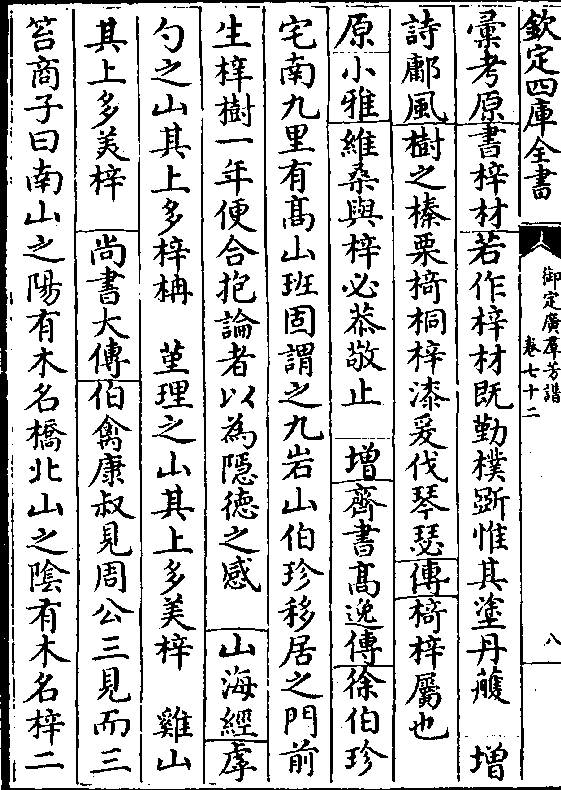 欽定四庫全書
御定廣羣芳譜
卷七十二
八
彚考原書梓材若作梓材既勤樸斵惟其塗丹雘　增
詩鄘風樹之榛栗椅桐梓漆爰伐琴瑟傳椅梓屬也
原小雅維桑與梓必恭敬止　增齊書髙逸傳徐伯珍
宅南九里有髙山班固謂之九岩山伯珍移居之門前
生梓樹一年便合抱論者以為隱德之感　山海經虖
勺之山其上多梓柟　堇理之山其上多美梓　雞山
其上多美梓　尚書大傳伯禽康叔見周公三見而三
笞商子曰南山之陽有木名橋北山之陰有木名梓二